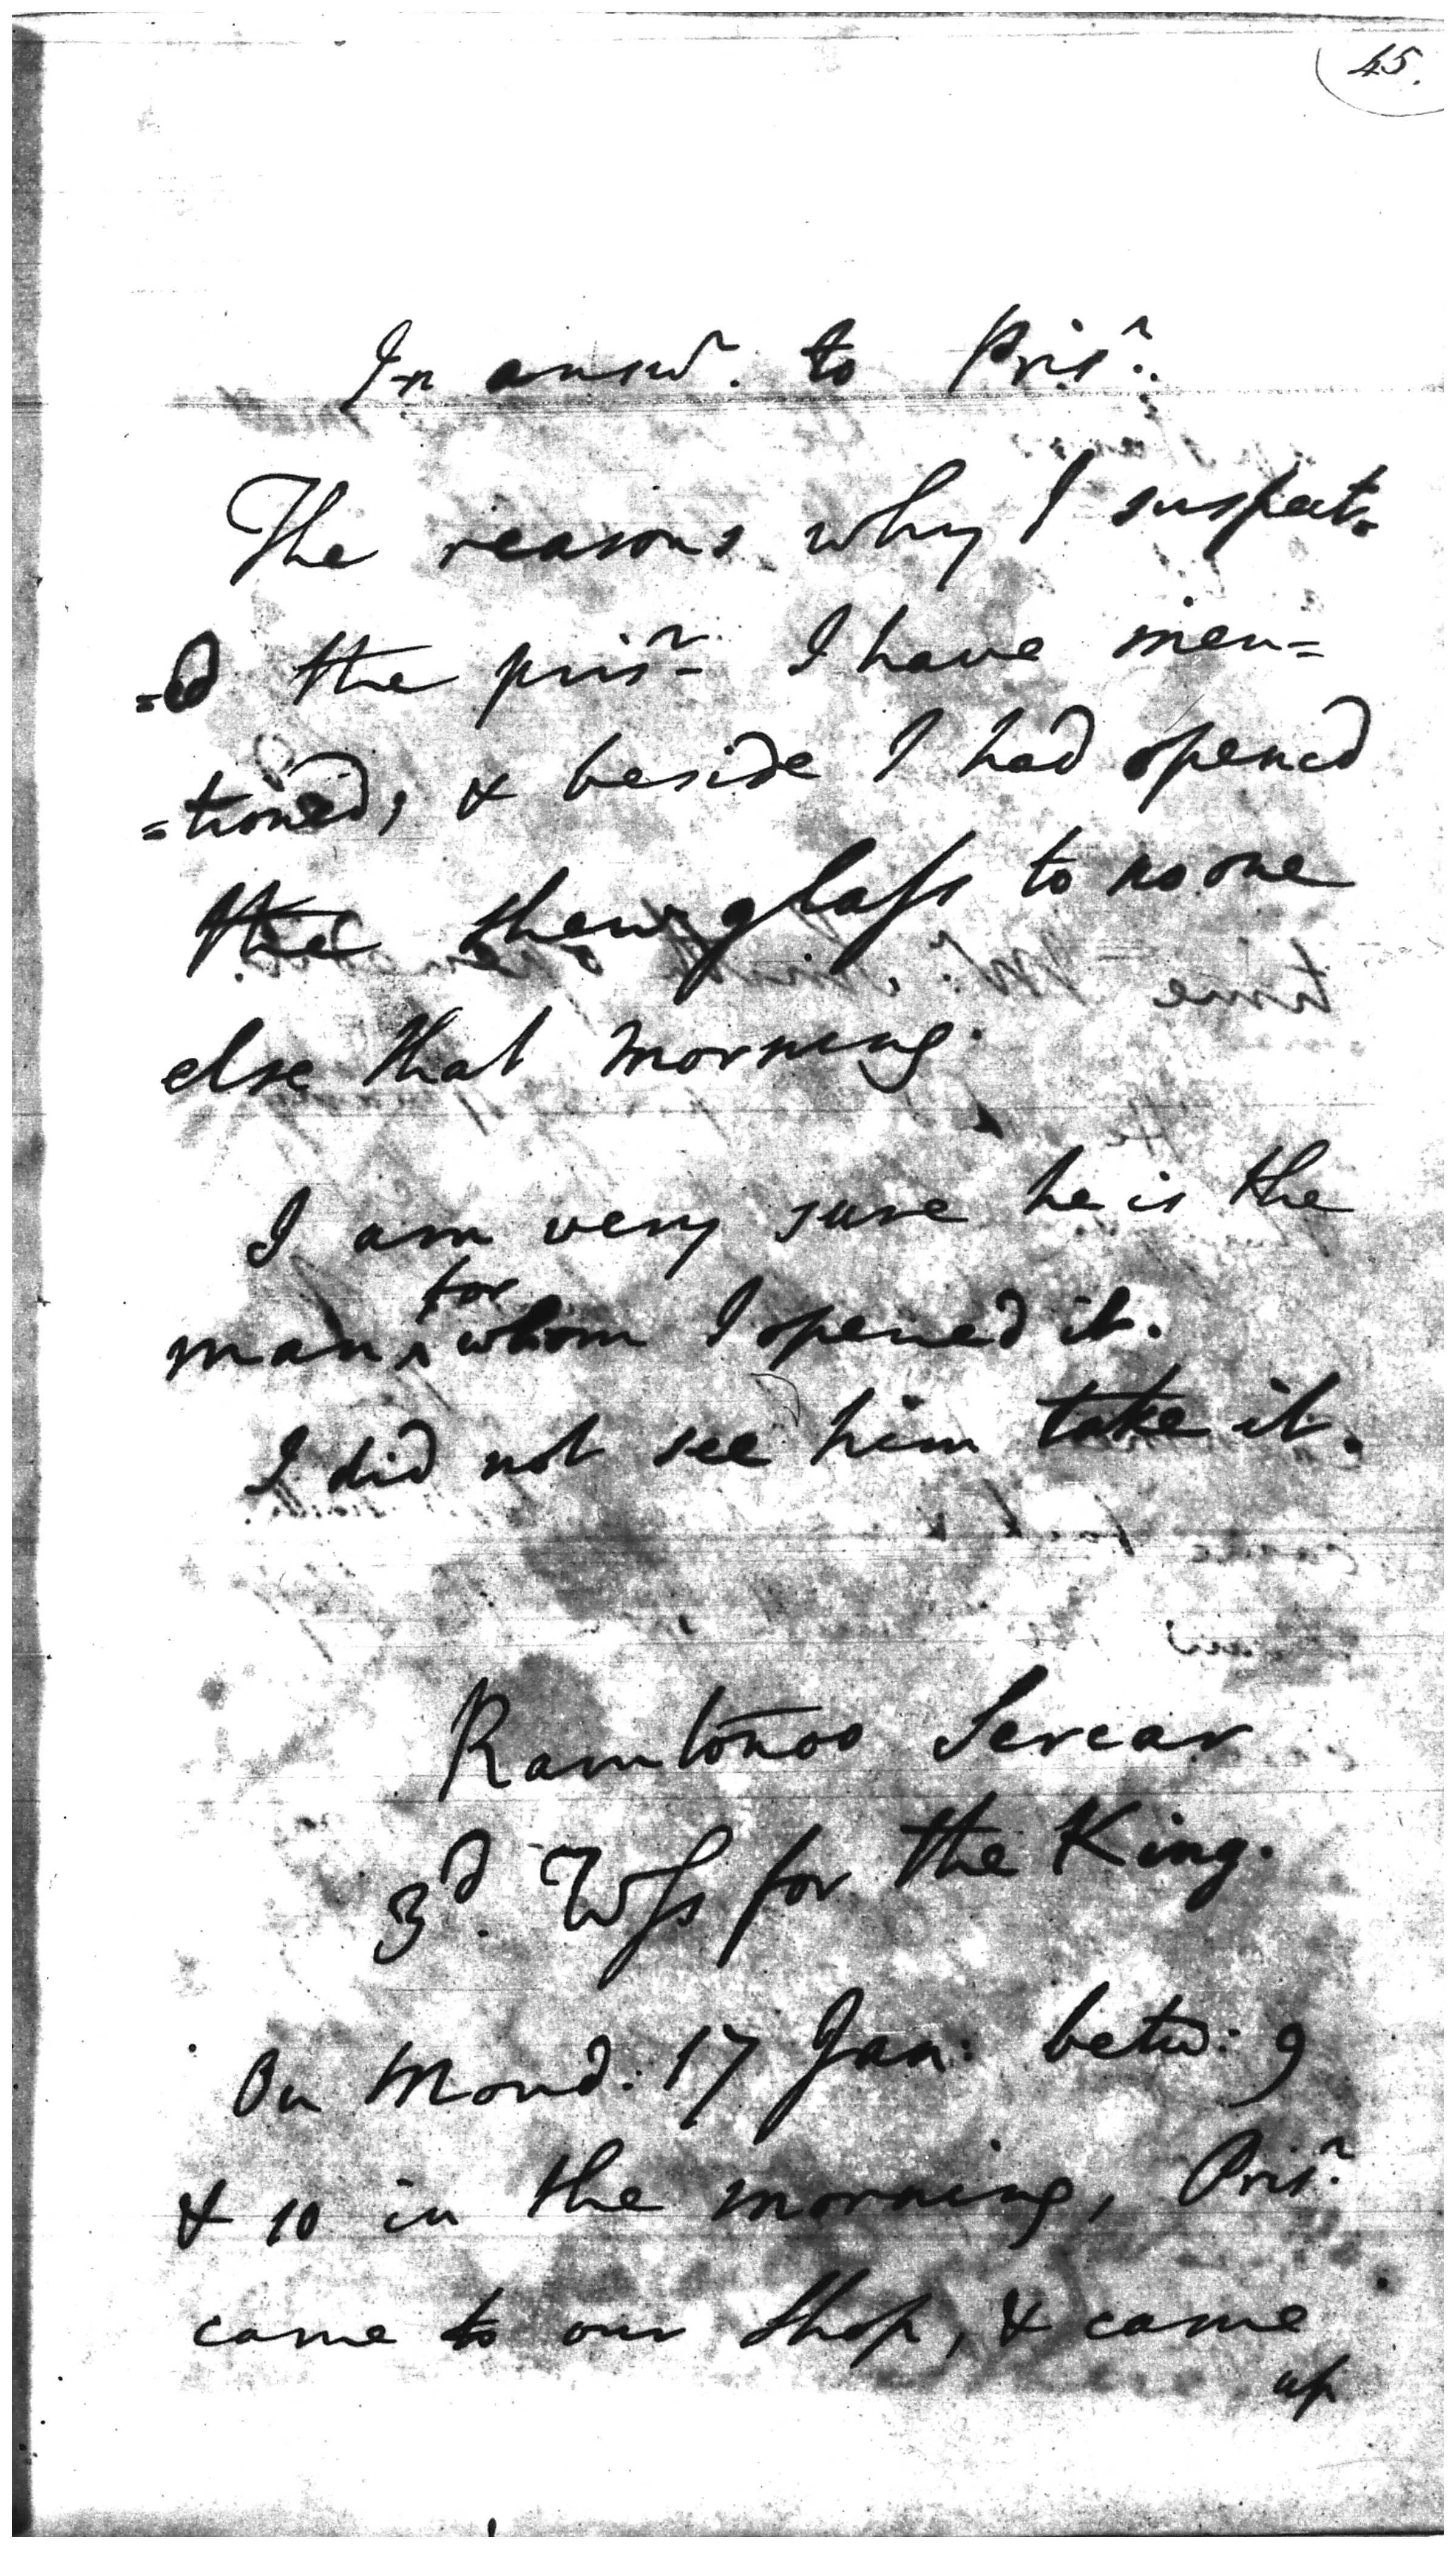 45.
In answr. to Prisr.
The reasons why I suspect=
=ed the prisr. I have men=
=tioned, & beside I had opened
the shew glass to no one
else that morning.
I am very sure he is the
for
man ^ whom I opened it.
I did not see him take it.
Ramtonoo Sercar
3d. Wss for the King.
On Mond: 17 Jan: betw: 9
& 10 in the morning, Prisr.
came to our shop, & came
up